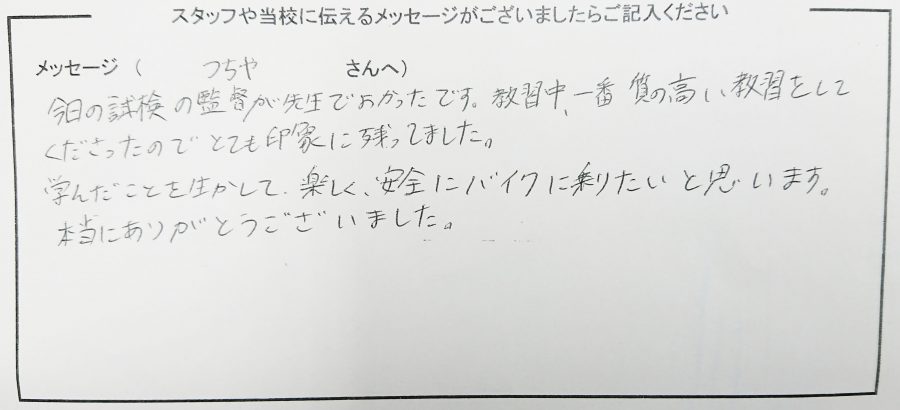 スタッフや当校に伝えるメッセージがございましたらご記入ください
メッセージ（ つちや さんへ）
今日の試検の監督が先生でよかったです。教習中、一番質の高い教習をして
くださったのでとても印象に残ってました。
学んだことを生かして、楽しく、安全にバイクに乗りたいと思います。
本当にありがとうございました。